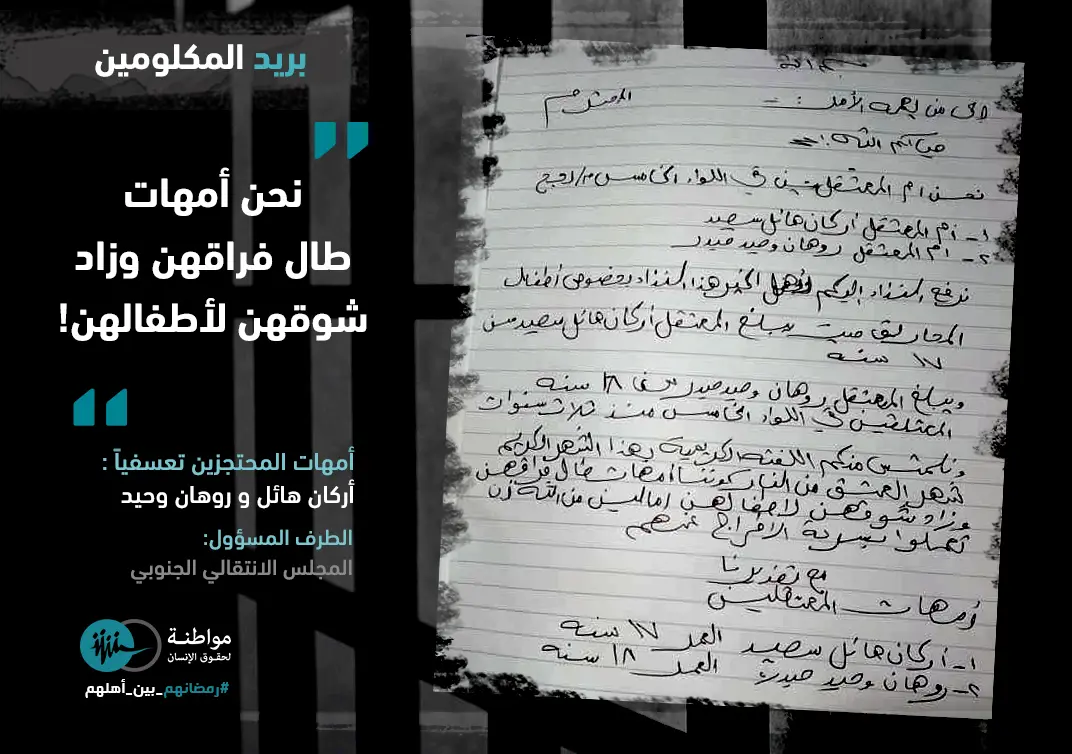 بريد المكلومين
نحن أمهات
طال فراقهن وزاد
شوقهن لأطفالهن!
أمهات المحتجزين تعسفياً :
أركان هائل و روهان وحيد
الطرف المسؤول:
المجلس الانتقالي الجنوبي
مواطنة
لحقوق الإنسان
#رمضانهم_بين_أهلهم
إلى من يهمه الأمر :- المحترم
حياكم الله؛
نحن ام المعتقلين في اللواء الخامس
١- ام المعتقل أركان هائل سعيد
٢- ام المعتقل روهان وحيد حيدر
نرفع النداء اليكم هذا النداء بخصوص أطفال
حيث يبلغ المعتقل أركان هائل سعيد سن
١٧ سنه
ويبلغ المعتقل روهان وحيد حيدر ١٨ سنه
المعتلقين في اللواء الخامس منذ ثلاث سنوات
ونلتمس منكم اللفته الكريمه بهذا الشهر الكريم
شهر العتق من النار كوننا أمهات طال فراقهن
وزاد شوقهن لاطفالهن املين من الله ان
تعملوا بسرعة الافراج عنهم
مع تقديرنا
أمهات المعتقلين
١- أركان هائل سعيد العمر ١٧ سنه
٢- روهان وحيد حيدر العمر ١٨ سنه